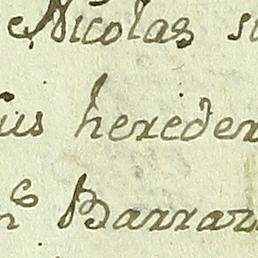 Nicolas s
us hereder
Barraz